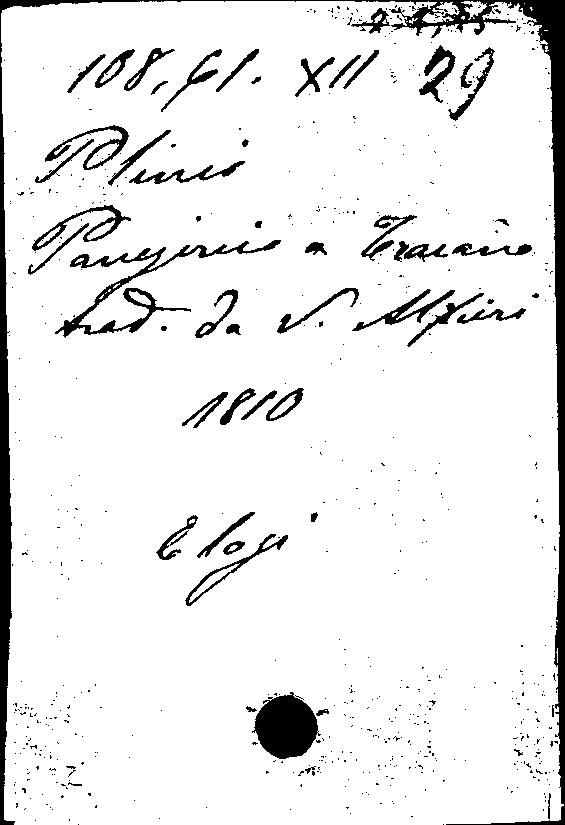 108. 61. XII 29
Plinio
Panegirico a Traiano
trad. da V. Alfieri
1810
Elogi